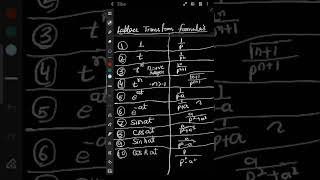 Laplace Transform formulas
① 1 1/p
② t 1/p²
③ tⁿ n = +ve integer n/pⁿ⁺¹
④ tⁿ n>-1 n+1/pⁿ⁺¹
⑤ e^at 1/p-a
⑥ e^-at 1/p+a
⑦ Sin at a/p²+a²
⑧ Cos at
⑨ Sinh at a/p²-a²
10 Cosh at p/p²-a²